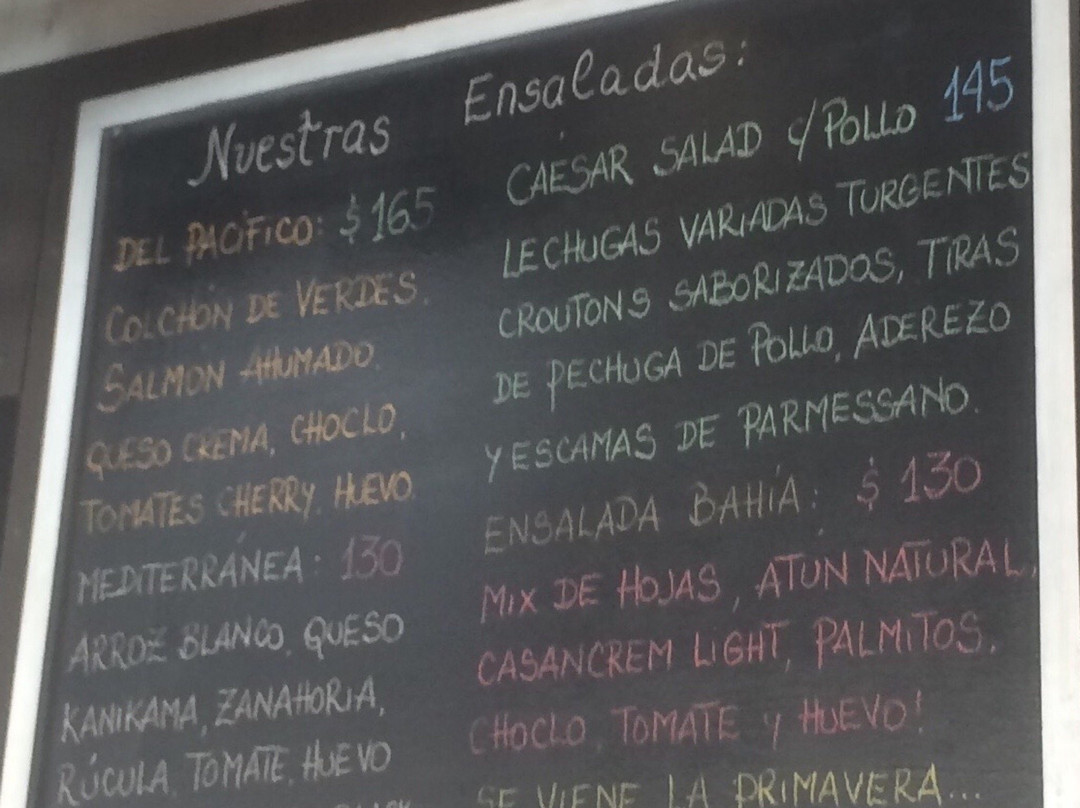 Nuestras Ensaladas:
DEL PACIFICO: $165
COLCHÓN DE VERDES,
SALMON AHUMADO,
QUESO CREMA, CHOCLO,
TOMATES CHERRY, HUEVO
MEDITERRÁNEA: 130
ARROZ BLANCO, QUESO
KANIKAMA, ZANAHORIA,
RÚCULA, TOMATE, HUEVO
CAESAR SALAD C/POLLO 145
LECHUGAS VARIADAS TURGENTES
CROUTONS SABORIZADOS, TIRAS
DE PECHUGA DE POLLO, ADEREZO
Y ESCAMAS DE PARMESSANO.
ENSALADA BAHÍA: $ 130
MIX DE HOJAS, ATUN NATURAL,
CASANCREM LIGHT, PALMITOS,
CHOCLO, TOMATE Y HUEVO!
SE VIENE LA PRIMAVERA...